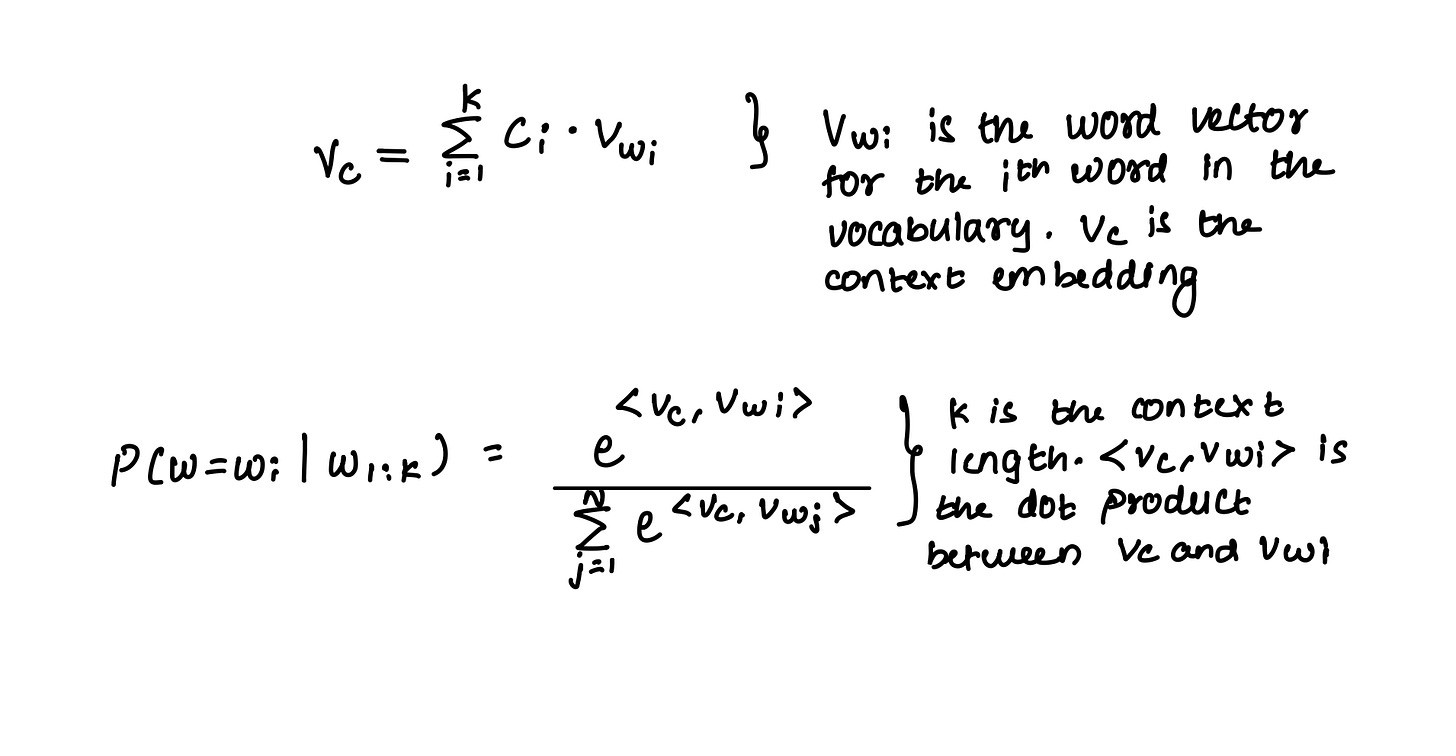 v_c = \sum_{i=1}^{k} c_i · v_{w_i} } V_{wi} is the word vector
for the i^{th} word in the
vocabulary. v_c is the
context embedding
P(w=w_i | w_{1:k}) = \frac{e^{<v_c, v_{wi}>}}{\sum_{j=1}^{N} e^{<v_c, v_{wj}>}} } k is the context
length. <v_c, v_{wi}> is
the dot product
between v_c and v_{wi}